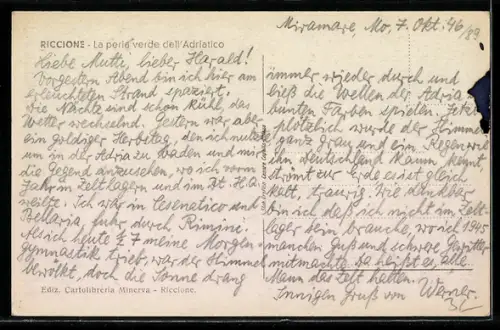 Miramare, Mo, 7. Okt. 46/89
RICCIONE - La perla verde dell'Adriatico
Liebe Mutti, lieber Harald!
Vorgestern Abend bin ich hier am
erleuchteten Strand spaziert.
Die Nächte sind schon kühl, das
Wetter wechselnd. Gestern war aber
ein goldiger Herbsttag, den ich nutzte
um in der Adria zu baden und mir
die Gegend anzusehen, wo ich vorm
Jahr in Zeltlagern und im
weilte. Ich war in Cesenatico und
Bellaria, fuhr durch Rimini.
Als ich heute ½ 7 meine Morgen-
gymnastik trieb, war der Himmel
bewölkt, doch die Sonne drang
Ediz. Cartolibreria Minerva - Riccione.
immer wieder durch und
ließ die Wellen der Adria
bunten Farben spielen. Jetzt
plötzlich wurde der Himmel
ganz grau und ein Regen, wie
ihn Deutschland kaum kennt,
strömt zur Erde. Es ist gleich
kalt, traurig. Wie dankbar
bin ich daß ich nicht im Zelt-
lager sein brauche, wo ich 1945
manchen Guß und schwere Gewitter
mitmachte. Da hieß es, alle
Mann das Zelt halten.
Innigen Gruß von Werner.